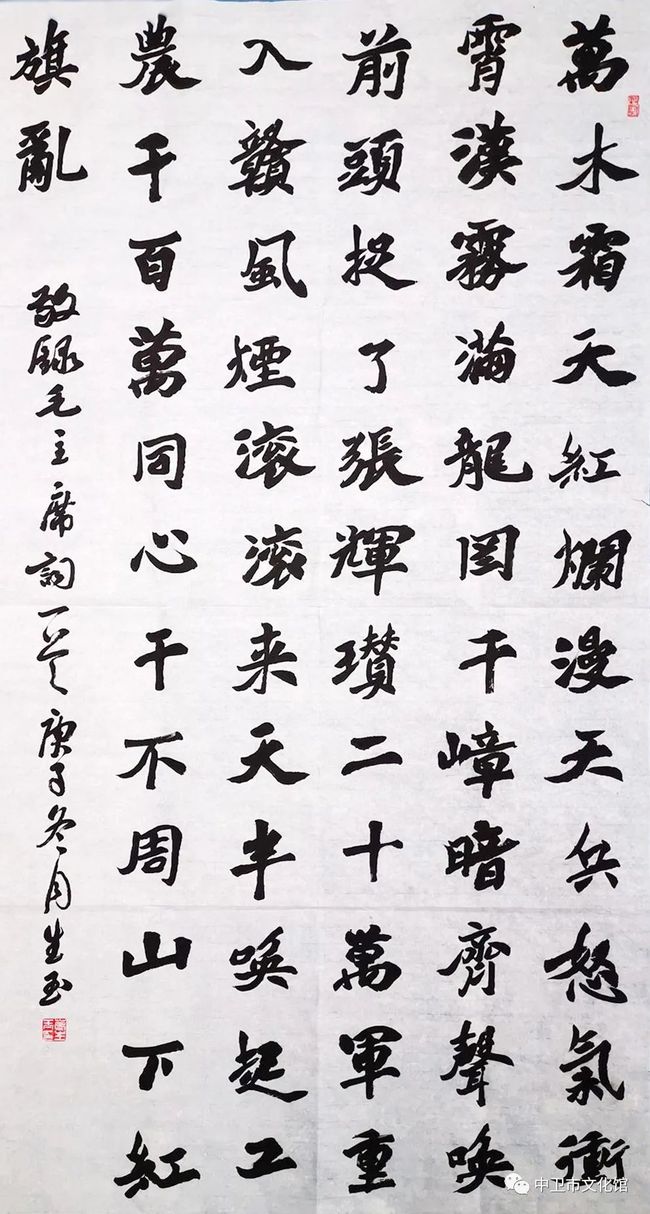 萬木霜天紅爛漫天兵怒氣衝
霄漢霧滿龍岡千嶂暗齊聲喚
前頭捉了張輝瓚二十萬軍重
入贛風煙滾滾来天半喚起工
農千百萬同心干不周山下紅
旗亂
敬録毛主席詞一首庚子冬月生玉
中卫市文化馆